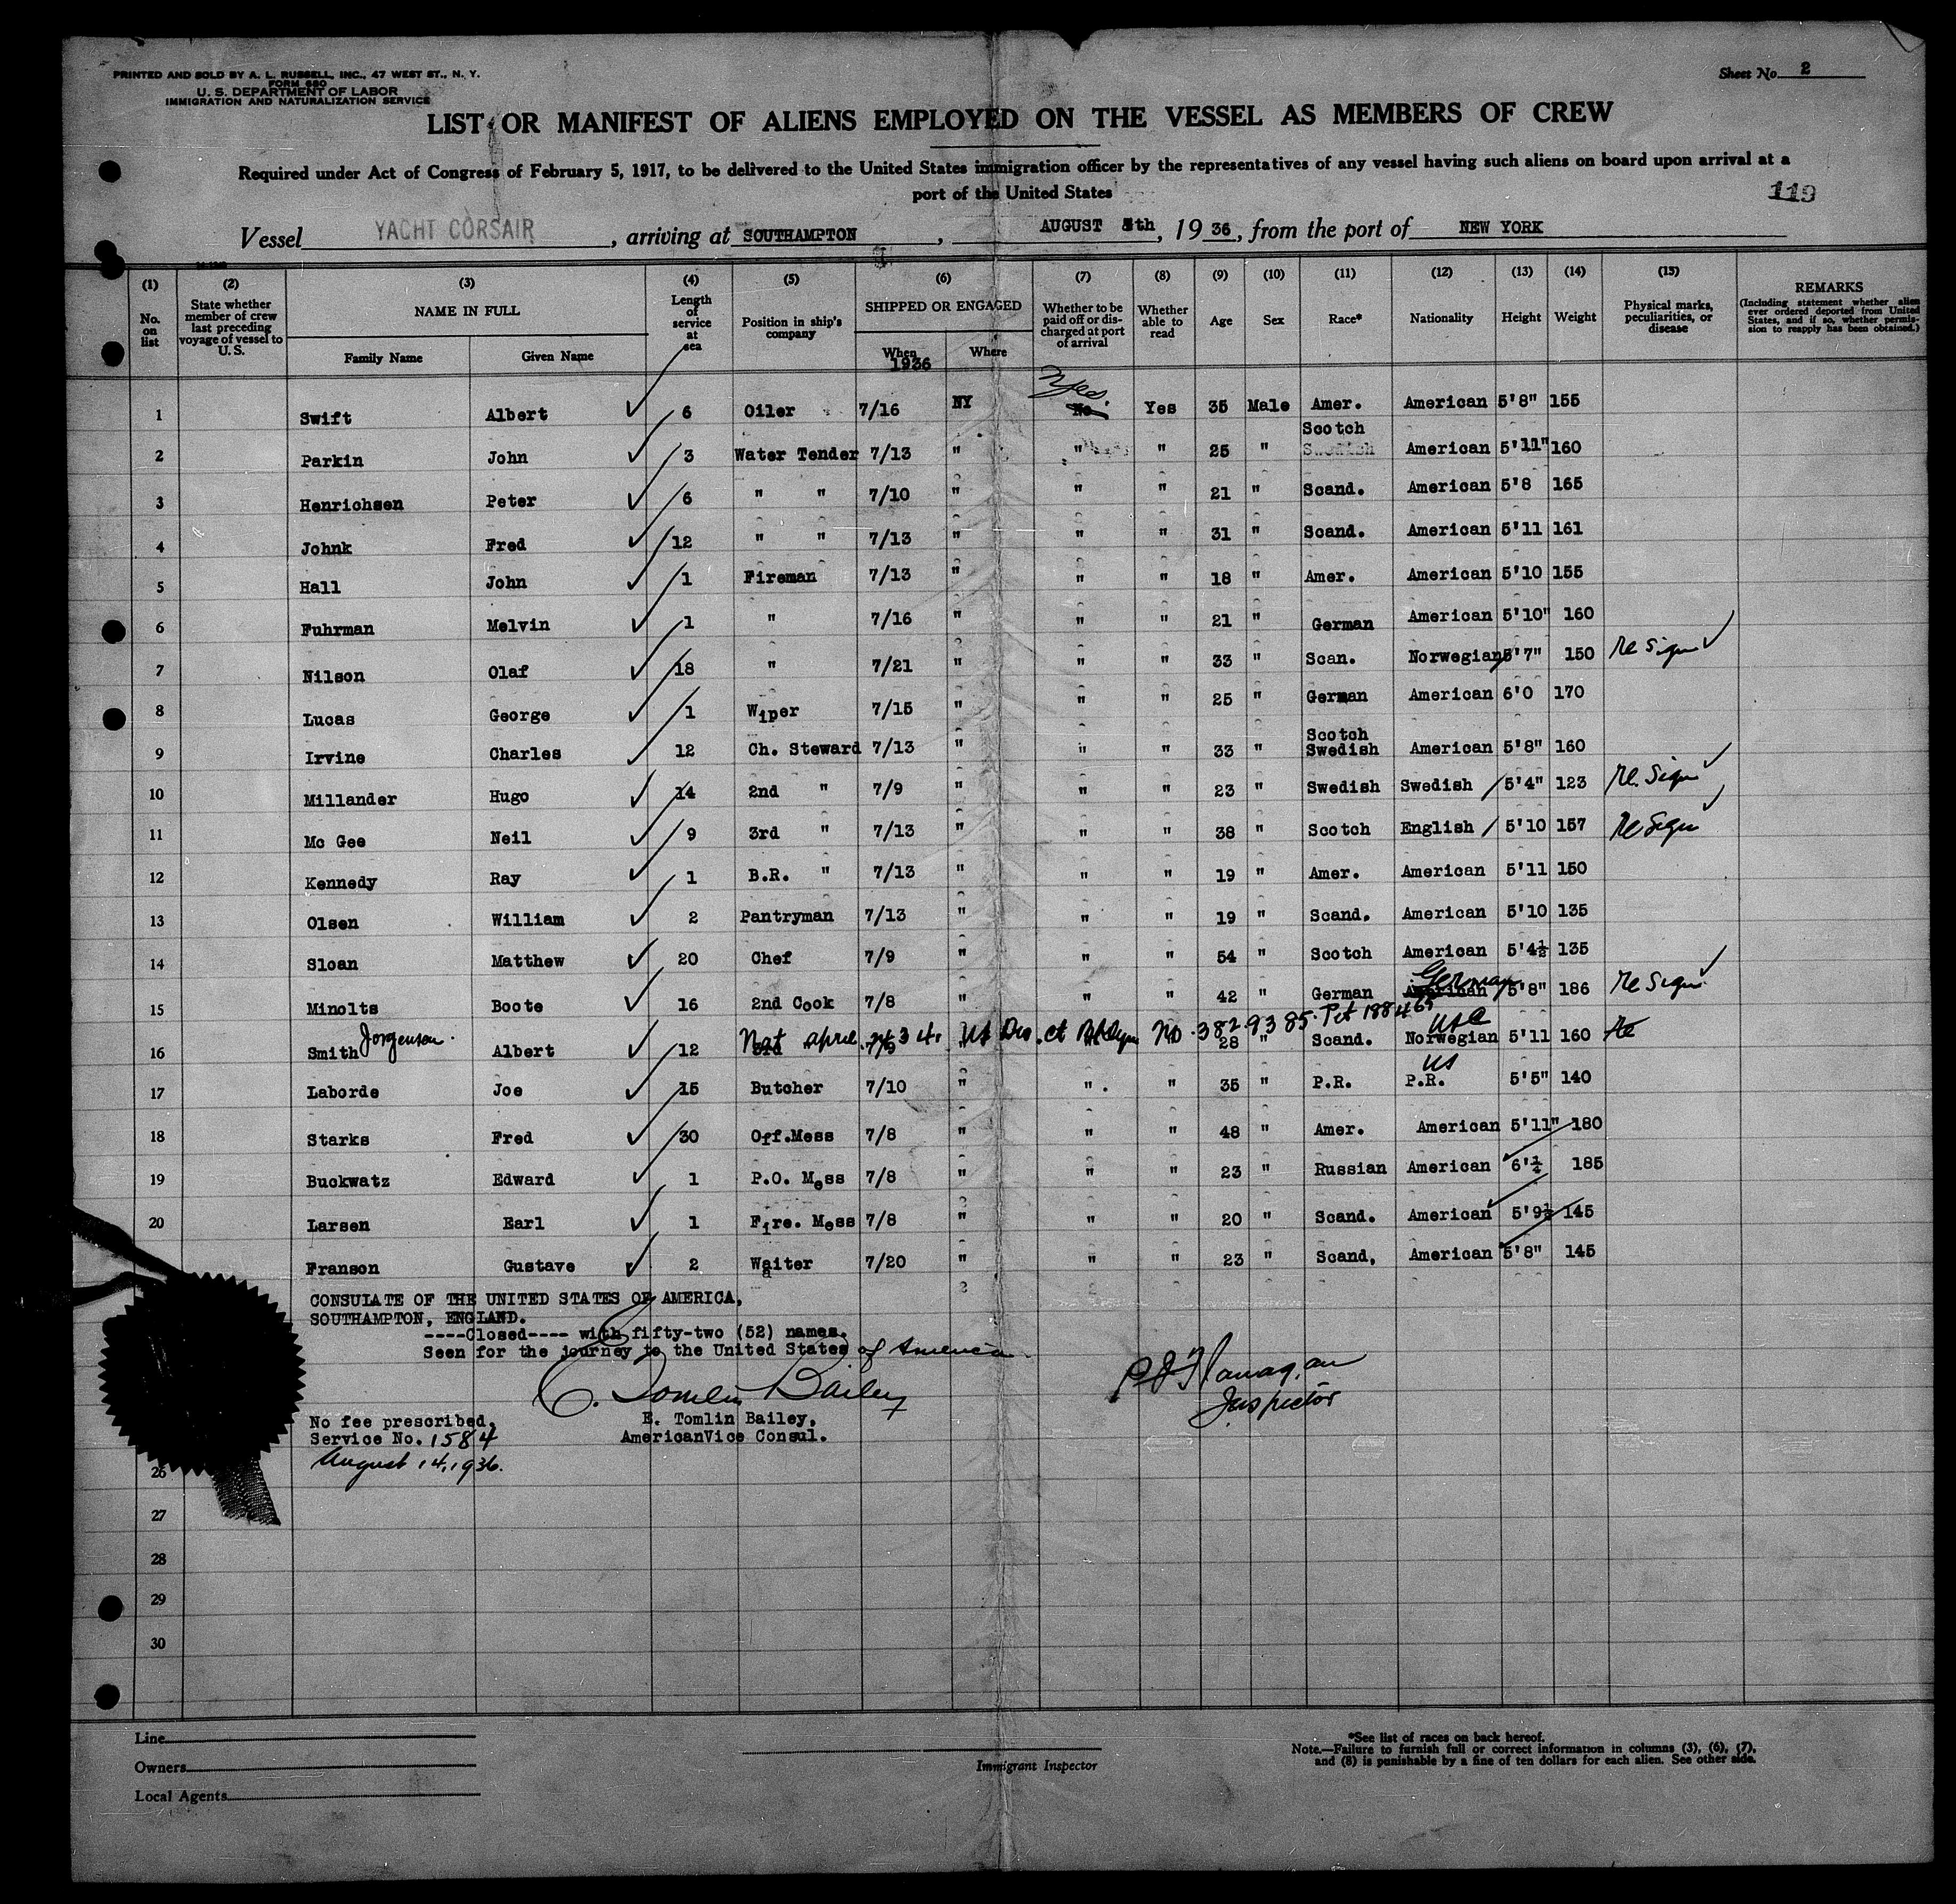 PRINTED AND SOLD BY A. L. RUSSELL, INC., 47 WEST ST., N. Y.
FORM 680
U. S. DEPARTMENT OF LABOR
IMMIGRATION AND NATURALIZATION SERVICE
Sheet No. 2
LIST OR MANIFEST OF ALIENS EMPLOYED ON THE VESSEL AS MEMBERS OF CREW
Required under Act of Congress of February 5, 1917, to be delivered to the United States immigration officer by the representatives of any vessel having such aliens on board upon arrival at a
port of the United States
119
Vessel YACHT CORSAIR, arriving at SOUTHAMPTON, AUGUST 5th, 1936, from the port of NEW YORK
(1) (2) (3) (4) (5) (6) (7) (8) (9) (10) (11) (12) (13) (14) (15)
No. on list
State whether member of crew last preceding voyage of vessel to U. S.
NAME IN FULL
Family Name Given Name
Length of service at sea
Position in ship's company
SHIPPED OR ENGAGED
When 1936 Where
Whether to be paid off or discharged at port of arrival
Whether able to read
Age
Sex
Race*
Nationality
Height
Weight
Physical marks, peculiarities, or disease
REMARKS
(Including statement whether alien ever ordered deported from United States, and if so, whether permission to reapply has been obtained.)
yes.
1 Swift Albert 6 Oiler 7/16 NY No Yes 35 Male Amer. American 5'8" 155
Scotch
2 Parkin John 3 Water Tender 7/13 " " " 25 " Swedish American 5'11" 160
3 Henrichsen Peter 6 " " 7/10 " " " 21 " Scand. American 5'8 165
4 Johnk Fred 12 " " 7/13 " " " 31 " Scand. American 5'11 161
5 Hall John 1 Fireman 7/13 " " " 18 " Amer. American 5'10 155
6 Fuhrman Melvin 1 " 7/16 " " " 21 " German American 5'10" 160
7 Nilson Olaf 18 " 7/21 " " " 33 " Scan. Norwegian 5'7" 150 Re Sign
8 Lucas George 1 Wiper 7/15 " " " 25 " German American 6'0 170
Scotch
9 Irvine Charles 12 Ch. Steward 7/13 " " " 33 " Swedish American 5'8" 160
10 Millander Hugo 14 2nd " 7/9 " " " 23 " Swedish Swedish 5'4" 123 Re. Sign
11 Mc Gee Neil 9 3rd " 7/13 " " " 38 " Scotch English 5'10 157 Re Sign
12 Kennedy Ray 1 B.R. " 7/13 " " " 19 " Amer. American 5'11 150
13 Olsen William 2 Pantryman 7/13 " " " 19 " Scand. American 5'10 135
14 Sloan Matthew 20 Chef 7/9 " " " 54 " Scotch American 5'4½ 135
German
15 Minolts Boote 16 2nd Cook 7/8 " " " 42 " German American 5'8" 186 Re Sign
Jorgensen Nat april 34. US Dis. ct No. 3829385. Pet 188469 USC
16 Smith Albert 12 3rd " 7/9 " 28 " Scand. Norwegian 5'11 160 Re
US
17 Laborde Joe 15 Butcher 7/10 " " " 35 " P.R. P.R. 5'5" 140
18 Starks Fred 30 Off.Mess 7/8 " " " 48 " Amer. American 5'11" 180
19 Buckwatz Edward 1 P.O. Mess 7/8 " " " 23 " Russian American 6'¼ 185
20 Larsen Earl 1 Fire. Mess 7/8 " " " 20 " Scand. American 5'9½ 145
Franson Gustave 2 Waiter 7/20 " " " 23 " Scand, American 5'8" 145
CONSULATE OF THE UNITED STATES OF AMERICA,
SOUTHAMPTON, ENGLAND.
----Closed---- with fifty-two (52) names.
Seen for the journey to the United States of America
E. Tomlin Bailey
E. Tomlin Bailey,
AmericanVice Consul.
P J Flanagan
Inspector
No fee prescribed,
Service No. 1584
August 14, 1936.
26
27
28
29
30
Line
Owners
Local Agents
Immigrant Inspector
*See list of races on back hereof.
Note.—Failure to furnish full or correct information in columns (3), (6), (7),
and (8) is punishable by a fine of ten dollars for each alien. See other side.